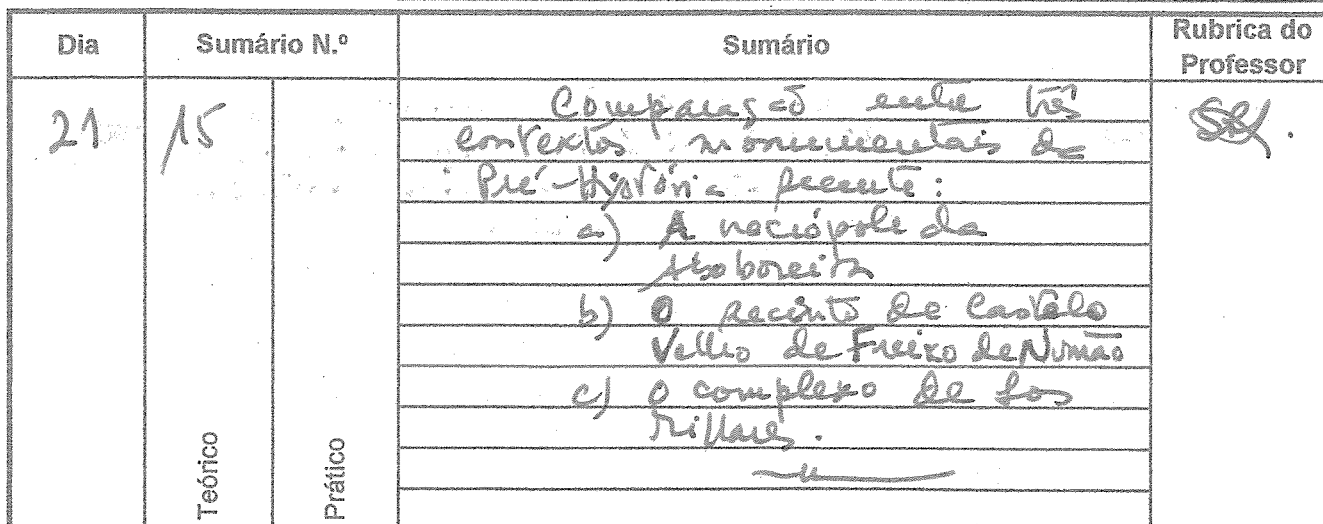 Dia Sumário N.º Sumário Rubrica do Professor
21 15 Comparação entre três
contextos monumentais da
Pré-História recente:
a) A necrópole da
Aboboreira
b) O recinto de Castelo
Velho de Freixo de Numão
c) O complexo de Los
Millares.
Teórico Prático